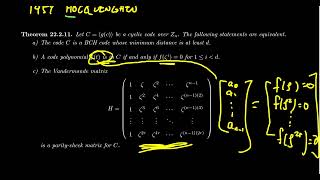 1957 HOCQUENGHEM
Theorem 22.2.11. Let C = ⟨g(t)⟩ be a cyclic code over Z₂. The following statements are equivalent.
a) The code C is a BCH code whose minimum distance is at least d.
b) A code polynomial f(t) is in C if and only if f(ζⁱ) = 0 for 1 ≤ i < d.
c) The Vandermonde matrix
H =
1 ζ ζ² ⋯ ζⁿ⁻¹
1 ζ² ζ⁴ ⋯ ζ⁽ⁿ⁻¹⁾⁽²⁾
1 ζ³ ζ⁶ ⋯ ζ⁽ⁿ⁻¹⁾⁽³⁾
⋮ ⋮ ⋮ ⋱ ⋮
1 ζ²ʳ ζ⁴ʳ ⋯ ζ⁽ⁿ⁻¹⁾⁽²ʳ⁾
is a parity-check matrix for C.
a₀
a₁
⋮
aₙ₋₁
=
f(ζ)=0
f(ζ²)=0
⋮
f(ζ²ʳ)=0